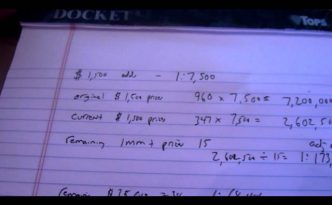 DOCKET
TOPS
$ 1,500 odds - 1:7,500
original $ 1,500 prizes 960 x 7,500 = 7,200,000
current $ 1,500 prizes 347 x 7,500 = 2,602,50
remaining 1mm + prizes 15 adj
2,602,500 ÷ 15 = 1:173,
remaining $